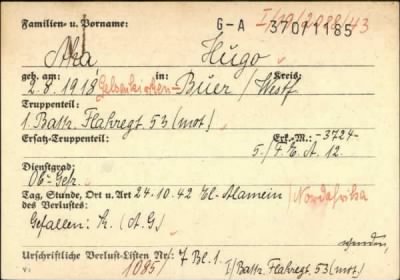 Familien- u. Vorname: G-A 370/1185
Hugo
geb. am: in: Kreis:
2. 8. 1918 Gelsenkirchen- Buer / Westf
Truppenteil:
1. Battr. Flakregt 53 (mot)
Ersatz-Truppenteil: Erk.-M.: -3724-
5./F.E.A. 12.
Dienstgrad:
Ob-Gefr.
Tag, Stunde, Ort u. Art 24.10.42 El-Alamein / Nordafrika
des Verlustes:
Gefallen: (A.G)
Urschriftliche Verlust-Listen Nr.: 7 Bl. 1.
1085/ I/Battr. Flakregt 53 (mot)